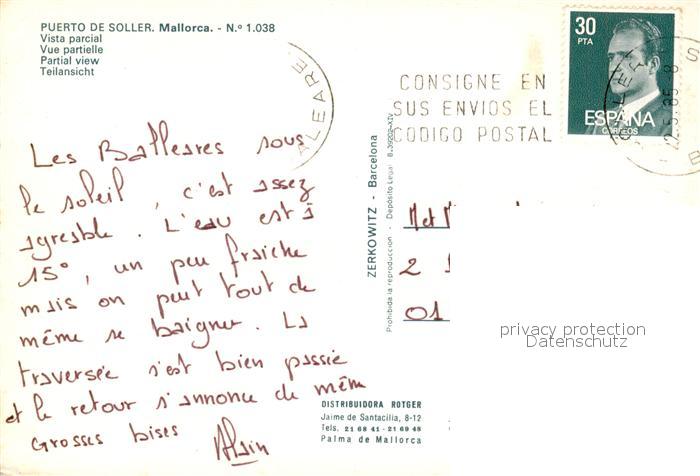 PUERTO DE SOLLER. Mallorca. - N.º 1.038
Vista parcial
Vue partielle
Partial view
Teilansicht
30
PTA
ESPAÑA
CORREOS
CONSIGNE EN
SUS ENVIOS EL
CODIGO POSTAL
ALEARE
Les Balleares sous
le soleil, c'est assez
agreable. L'eau est à
15°, un peu fraiche
mais on peut tout de
même se baigner. La
traversée s'est bien passée
et le retour s'annonce de même
Grosses bises Alain
ZERKOWITZ - Barcelona
Prohibida la reproducción - Depósito Legal B.
M et M
2
01
privacy protection
Datenschutz
DISTRIBUIDORA ROTGER
Jaime de Santacilia, 8-12
Tels. 21 68 41 - 21 69 48
Palma de Mallorca